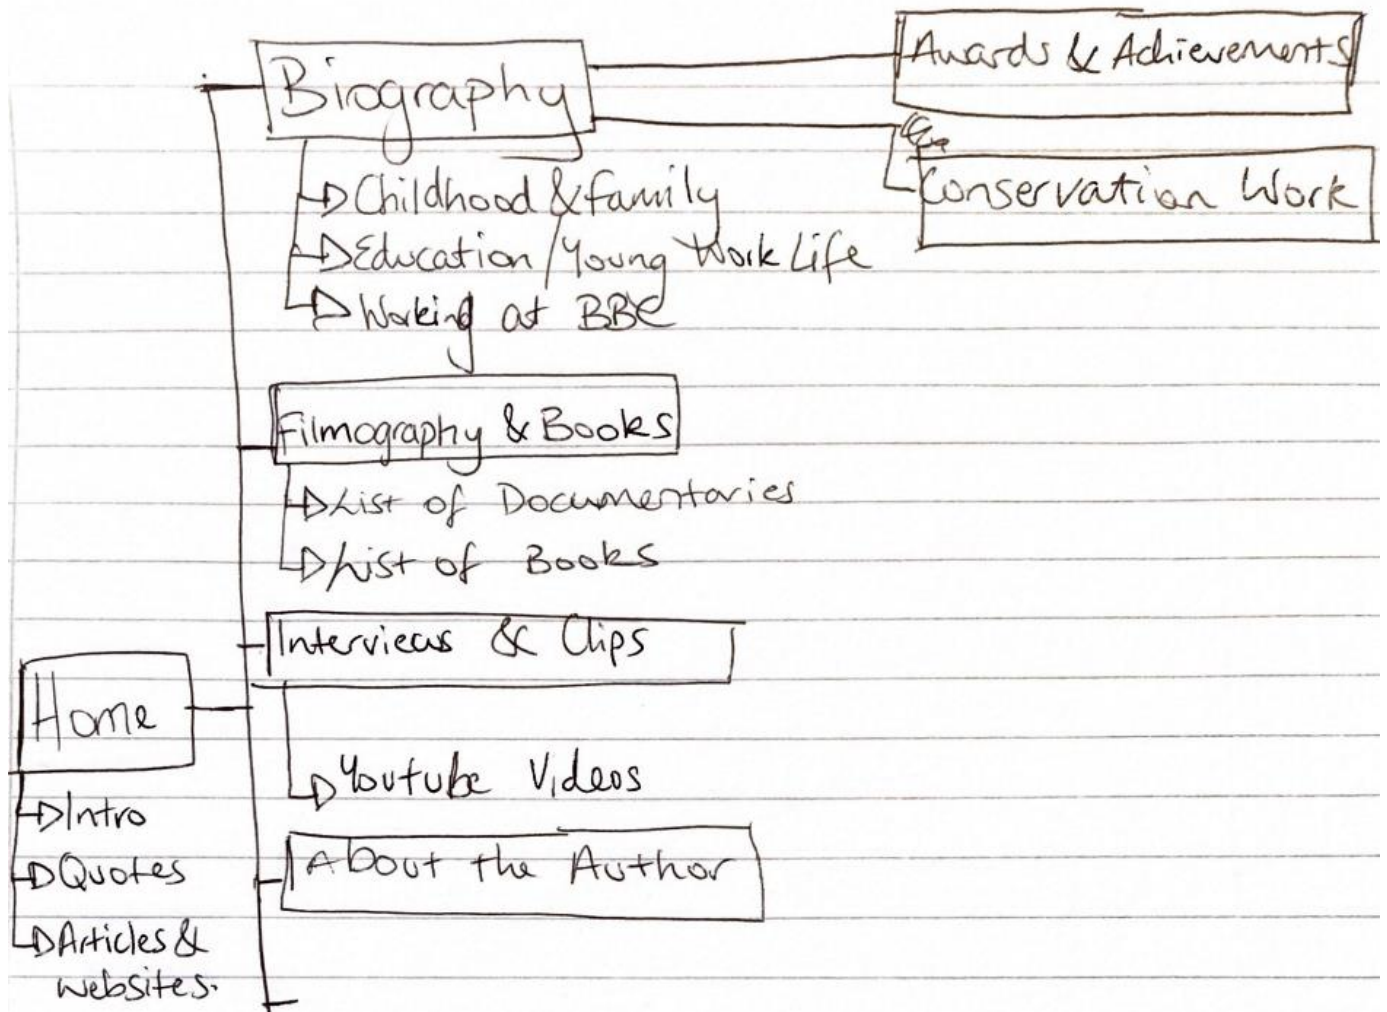 Biography
Awards & Achievements
Conservation Work
Childhood & family
Education / Young Work Life
Working at BBC
Filmography & Books
List of Documentaries
List of Books
Interviews & Clips
Youtube Videos
About the Author
Home
Intro
Quotes
Articles &
websites.